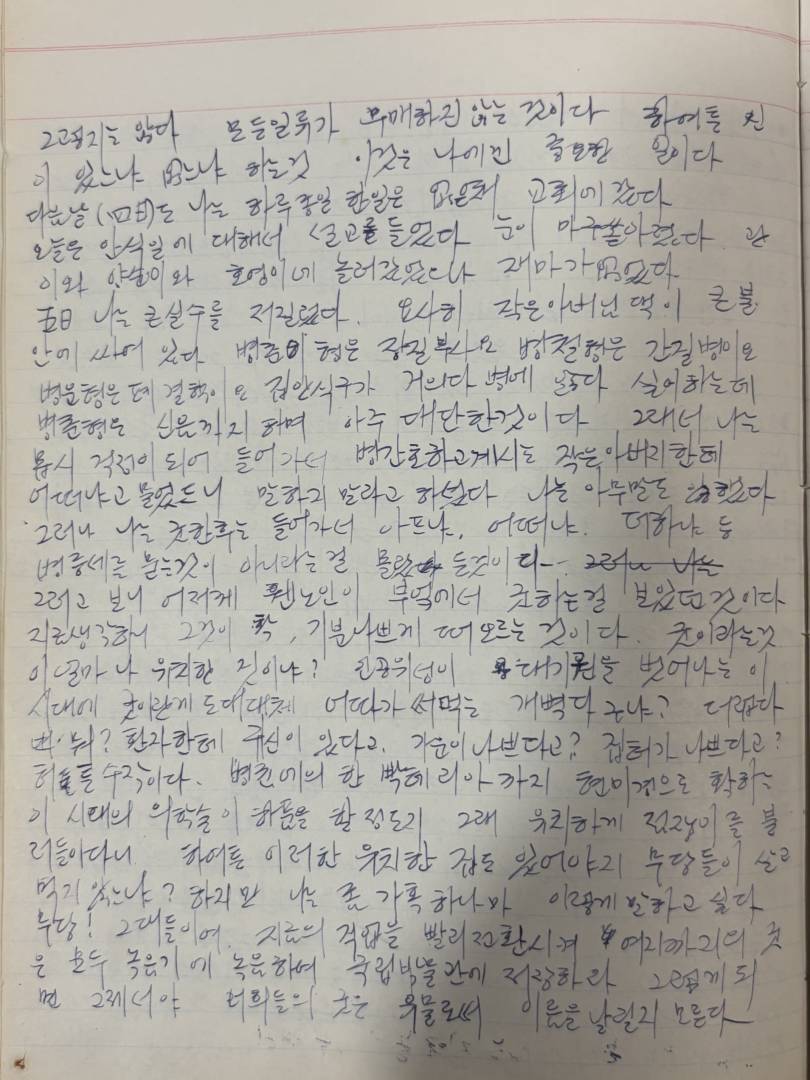 그렇지는 않다 모든인류가 우매하진 않는 것이다 하여튼 신
이 있느냐 없느냐 하는것 이것은 나에겐 중요한 일이다
다음날(四日)도 나는 하루종일 한일은 없은채 교회에 갔다
오늘은 안식일에 대해서 설교를 들었다 눈이 마구쏟아졌다 관
이와 호영이네 놀러갔었으나 재마가없었다
五日 나는 큰실수를 저질렀다. 요사히 작은아버님 댁이 큰불
안에 싸여 있다 병준이형은 장질부사요 병철형은 간질병이요
병문형은 폐결핵이요 집안식구가 거의다 병에 싫어하는데
병준형은 신음까지 하며 아주 대단한것이다 그래서 나는
몹시 걱정이 되어 들어가서 병간호하고계시는 작은아버지한테
어떠냐고 물었드니 말하지 말라고 하셨다 나는 아무말도 않했다
그러나 나는 굿한후는 들어가서 아프냐, 어떠냐. 더하냐 등
병증세를 묻는것이 아니라는걸 몰랐든것이다--- 그러나 나는
그러고 보니 어저께 왠노인이 부엌에서 굿하는걸 보았던것이다
지금생각하니 그것이 확, 기분나쁘게 떠오르는 것이다. 굿이라는것
이 얼마나 유치한 짓이냐? 인공위성이 대기권을 벗어나는 이
시대에 굿이란게 도대대체 어따가 써먹는 개벽다구냐? 더럽다
뭐? 환자한테 귀신이 있다고. 가운이나쁘다고? 집터가 나쁘다고?
허튼수작이다. 한 박테리아까지 현미경으로 확하는
이 시대의 의학술이 하품을 할 정도지 그래 유치하게 점쟁이를 불
러들이다니 하여튼 이러한 유치한 집도 있어야지 무당들이 살고
먹지 않느냐? 하지만 나는 좀 가혹하나마 이렇게 말하고 싶다
무당! 그대들이여. 지금의 직업을 빨리전환시켜 여지까지의 굿
은 모두 녹음기에 녹음하여 국립박물관에 저장하라 그렇게 되
면 그제서야 너희들의 굿은 유물로써 이름을 날릴지 모른다